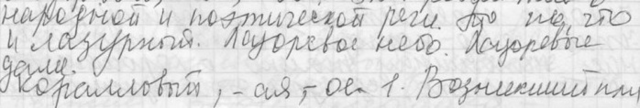 народной и поэтической речи. То же, что
и лазурный. Лазоревое небо. Лазоревые
дали.
Коралловый, -ая, -ое. 1. Возникший или